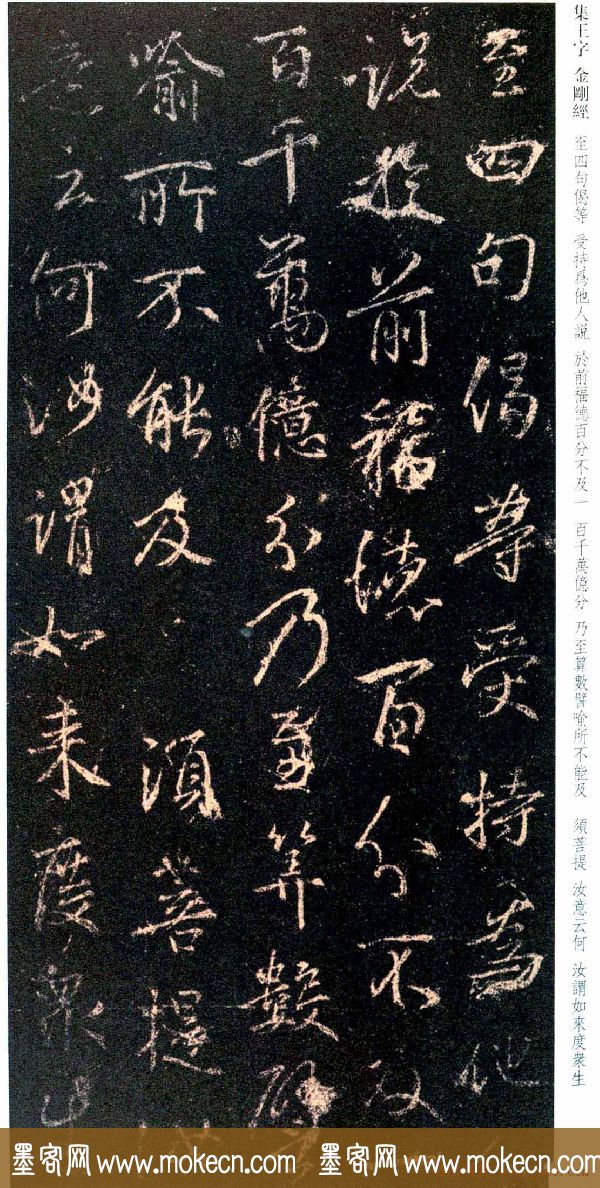 集王字 金剛經 至四句偈等 受持爲他人説 於前福德百分不及一 百千萬億分 乃至算數譬喻所不能及 須菩提 汝意云何 汝謂如來度衆生
至四句偈等受持為他
説於前福德百分不及
百千萬億分乃至算數譬
喻所不能及 須菩提
意云何汝謂如来度衆生
墨客网 www.mokecn.com 墨客网 www.mokecn.com